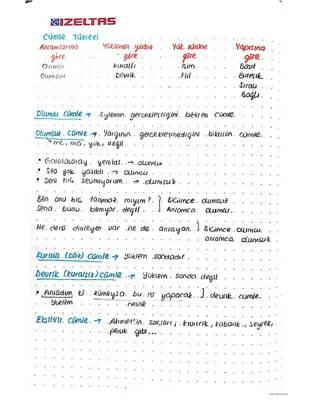 İZELTAŞ
Cümle Türleri
Anlamlarına göre Yüklemin yerine göre Yük. türüne göre Yapısına göre
Olumlu Kurallı İsim Basit
Olumsuz Devrik Fiil Birleşik
Sıralı
Bağlı
Olumlu cümle → Eylemin gerçekleştiğini bildiren cümle.
Olumsuz cümle → Yargının gerçekleşmediğini bildiren cümle.
me, ma, yok, değil
• Galatasaray yenildi → olumlu
• Sıla çok yazıldı → olumlu
• Seni hiç sevmiyorum → olumsuz
Ben onu hiç tanımaz mıyım? Biçimce olumsuz
Sena bunu bilmiyor değil. Anlamca olumlu
Ne dersi dinleyen var ne de anlayan. Biçimce olumlu
anlamca olumsuz
Kurallı (düz) cümle → Yüklem sondadır.
Devrik (kuralsız) cümle → Yüklem sonda değil
• Anladım ki kimseye bu işi yaparak devrik cümle
Yüklem nesne
Eksiltili cümle → Ahmet'in saçları; kıvırcık, kabarık, seyrek,
gibi...